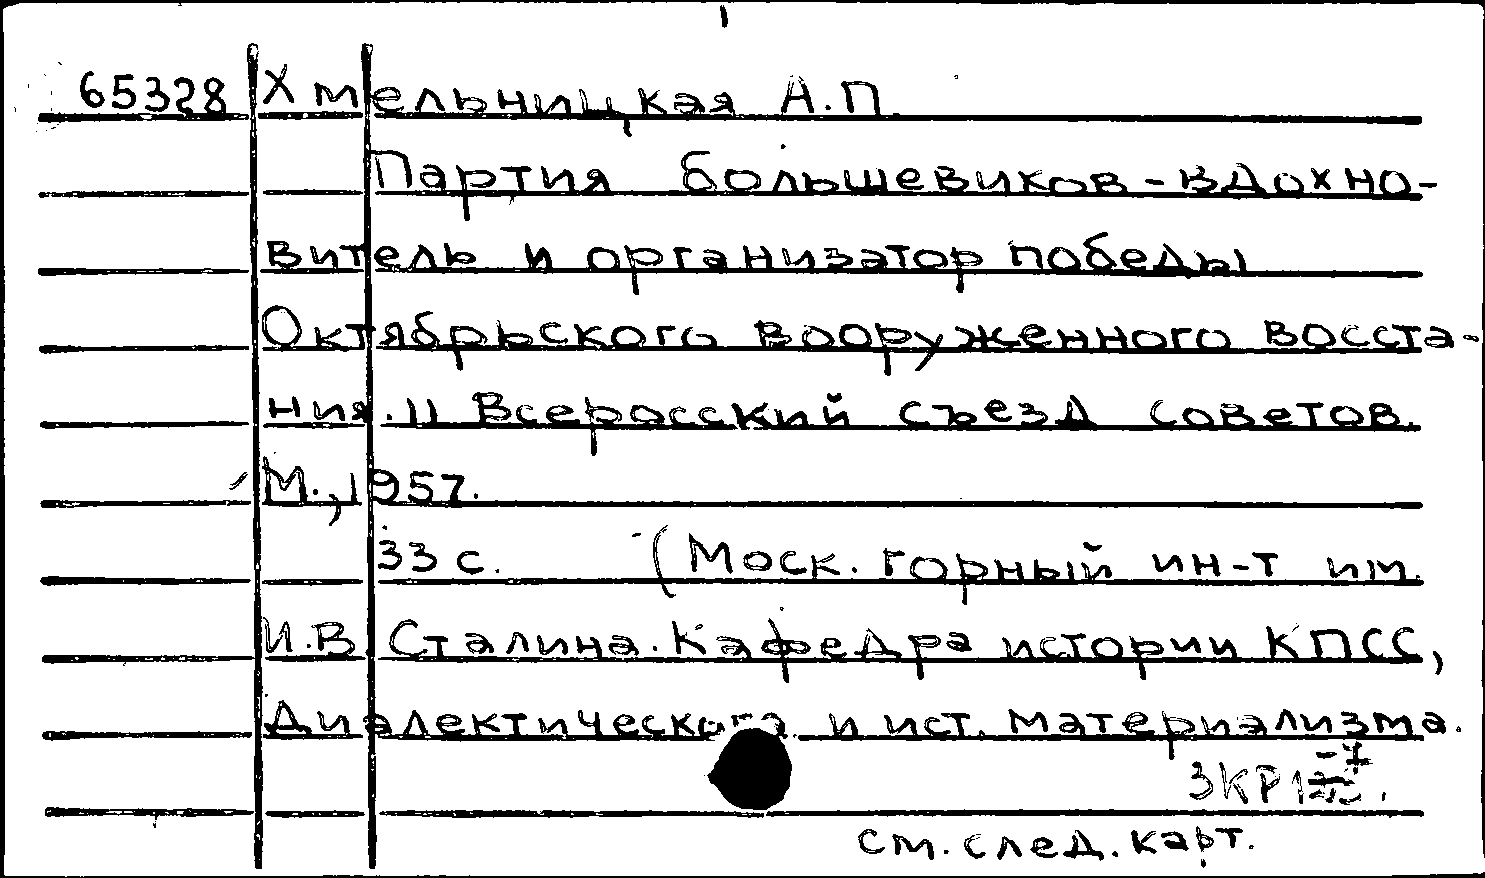 65328 Хмельницкая А.П.
Партия большевиков - вдохно-
витель и организатор победы
Октябрьского вооруженного восста-
ния. II Всеросский съезд советов.
М., 1957.
33 с. (Моск. горный ин-т им.
И.В. Сталина. Кафедра истории КПСС,
диалектического и ист. материализма.
3КР1
см. след. карт.